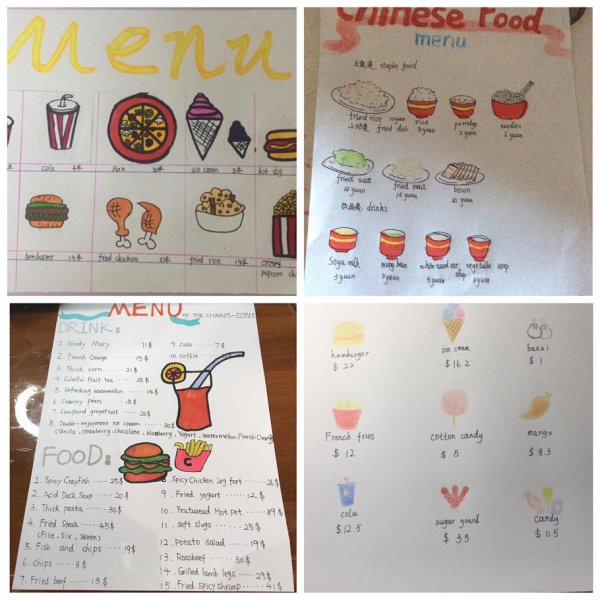 Menu
cola 4元
30元
ice cream 5元
hot dog
hamburger 14元
fried chicken 10元
fried rice 14元
popcorn
Chinese Food
menu
staple food
fried rice 10 yuan
rice
2 yuan
porridge
2 yuan
noodles
6 yuan
fried dish
fried salad
10 yuan
fried meat
15 yuan
bean
20 yuan
饮品类 drinks
Soya milk
3 yuan
mung bean
3 yuan
soup
3 yuan
vegetable soup
3 yuan
MENU
OF THE CHAMPS-ELYSEE
DRINK:
1. Bloody Mary ...... 11$
2. French Orange ...... 15$
3. Thick corn ...... 21$
4. Colorful fruit tea ...... 25$
5. Refreshing watermelon ...... 14$
6. Country pears ...... 15$
7. Compound grapefruit ...... 20$
8. Double-enjoyment ice cream ...... 30$
(Vanilla, strawberry, chocolate, blueberry, Yogurt, watermelon, French Orange)
9. cola ...... 7$
10. coffie
FOOD:
1. Spicy Crayfish ...... 25$
2. Acid Duck Soup ...... 20$
3. Thick pasta ...... 30$
4. Fried Steak ...... 45$
(Five, Six, Seven)
5. Fish and chips ...... 19$
6. chips ...... 8$
7. Fried beef ...... 18$
8. Spicy Chicken leg fort ...... 26$
9. Fried yogurt ...... 12$
10. Featuread Hot pot ...... 89$
11. soft slugs ...... 25$
12. potato salad ...... 19$
13. Roasbeef ...... 30$
14. Grilled lamb legs ...... 29$
15. Fried spicy shrimp ...... 41$
hamburger
$ 22
ice cream
$ 16.2
baozi
$ 1
French fries
$ 12
cotton candy
$ 5
mango
$ 8.3
cola
$ 12.5
sugar gourd
$ 3.5
candy
$ 0.5